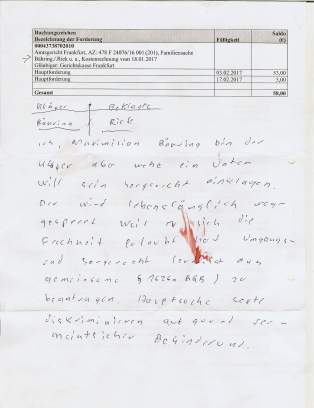 Buchungszeichen
Bezeichnung der Forderung Fälligkeit Saldo (€)
Amtsgericht Frankfurt, AZ: 478 F 24076/16 001 (201), Familiensache
Bäbring ./Rick u. a., Kostenrechnung vom 18.01.2017
Gläubiger: Gerichtskasse Frankfurt
Hauptforderung 03.02.2017 53,00
Hauptforderung 17.02.2017 5,00
Gesamt 58,00
Kläger Beklagte
Rick
ich, Maximilian bin der
Kläger aber ein Vater
will sein Sorgerecht einklagen.
Der wird lebenslänglich weg
gesperrt weil er sich die
Frechheit erlaubt und Umgangs-
und Sorgerecht
gemeinsame § 1626a BGB) zu
beantragen. Hauptsache
diskriminieren auf grund
Behinderung.